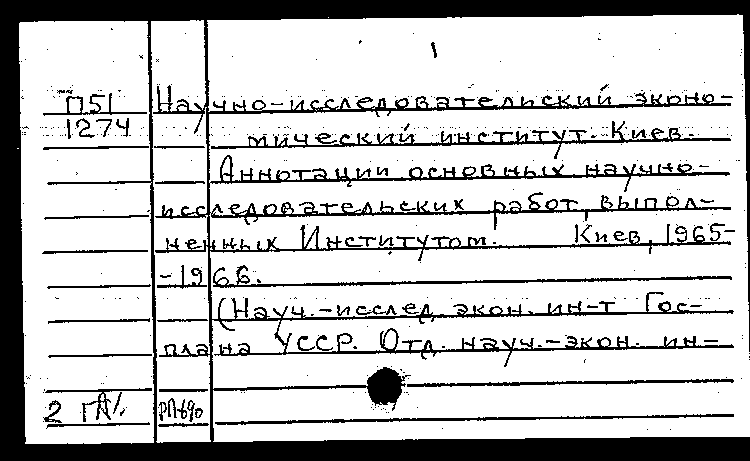 1
П51 Научно-исследовательский эконо-
1274 мический институт. Киев.
Аннотации основных научно-
исследовательских работ, выпол-
ненных Институтом. Киев, 1965-
-1966.
(Науч.-исслед. экон. ин-т Гос-
плана УССР. Отд. науч.-экон. ин-
2 РП-690